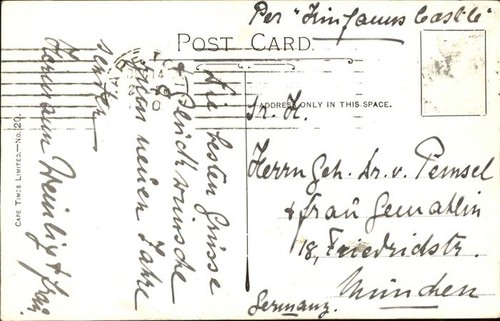 Per "Kinfauns Castle"
POST CARD.
ADDRESS ONLY IN THIS SPACE.
Sr. H.
Herrn Geh. Dr. v. Pemsel
& Frau Gemahlin
18, Friedrichstr.
München
Germany.
Die besten Grüsse
& Glückwünsche
zum neuen Jahre
senden
Hermann & Frau
CAPE TIMES LIMITED.—No. 20.